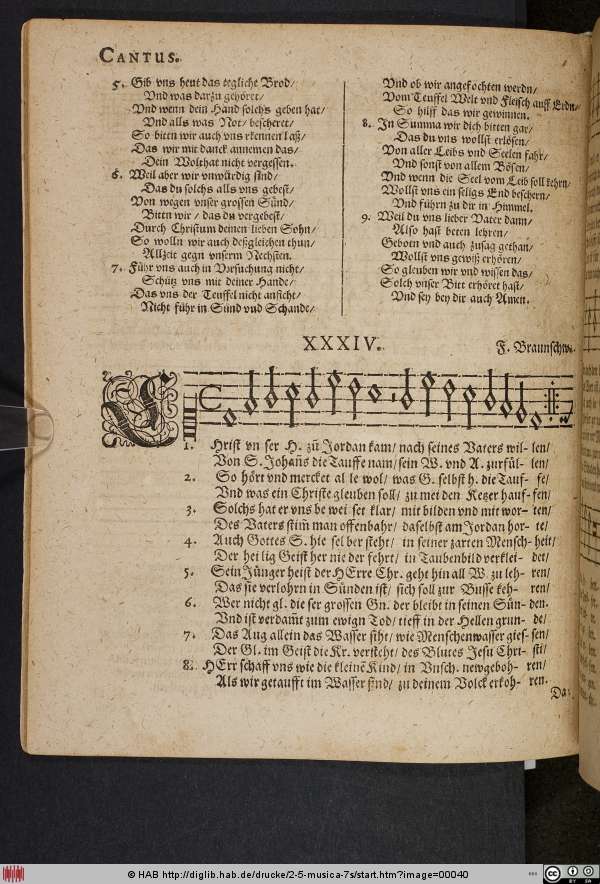 CANTUS.
5. Gib vns heut das tegliche Brod/
Vnd was darzu gehöret/
Vnd wenn dein Hand solchs geben hat/
Vnd alls was Not/ bescheret/
So bittn wir auch vns erkennen laß/
Das wir mit danck annemen das/
Dein Wolthat nicht vergessen.
6. Weil aber wir vnwürdig sind/
Das du solchs alls vns gebest/
Von wegen vnser grossen Sünd/
Bitten wir/ das du vergebest/
Durch Christum deinen lieben Sohn/
So wolln wir auch deßgleichen thun/
Allzeit gegn vnserm Nechsten.
7. Führ vns auch in Vrsuchung nicht/
Schütz vns mit deiner Hande/
Das vns der Teuffel nicht anficht/
Nicht führ in Sünd vnd Schande/
Vnd ob wir angefochten werdn/
Vom Teuffel Welt vnd Fleisch auff Erdn/
So hilff das wir gewinnen.
8. In Summa wir dich bitten gar/
Das du vns wollst erlösen/
Von aller Leibs vnd Seelen fahr/
Vnd sonst von allem Bösen/
Vnd wenn die Seel vom Leib soll kehrn/
Wollst vns ein seligs End beschern/
Vnd führn zu dir in Himmel.
9. Weil du vns lieber Vater dann/
Also hast beten lehren/
Geboten vnd auch zusag gethan/
Wollst vns gewiß erhören/
So gleuben wir vnd wissen das/
Solch vnser Bitt erhöret hast/
Vnd sey bey dir auch Amen.
XXXIV.
F. Braunschw.
1. Christ vn ser H. zu Jordan kam/ nach seines Vaters wil- len/
Von S. Johañs die Tauffe nam/ sein W. vnd A. zurfül- len/
2. So hört vnd mercket al le wol/ was G. selbst h. die Tauf- fe/
Vnd was ein Christe gleuben soll/ zu mei den Ketzer hauf- fen/
3. Solchs hat er vns be wei set klar/ mit bilden vnd mit wor- ten/
Des Vaters stim̃ man offenbahr/ daselbst am Jordan hor- te/
4. Auch Gottes S. hie sel ber steht/ in seiner zarten Mensch- heit/
Der hei lig Geist her nie der fehrt/ in Taubenbild verklei- det/
5. Sein Jünger heist der HErre Chr. geht hin all W. zu leh- ren/
Das sie verlohrn in Sünden ist/ sich soll zur Busse keh- ren/
6. Wer nicht gl. die ser grossen Gn. der bleibt in seinen Sün- den.
Vnd ist verdam̃t zum ewign Tod/ tieff in der Hellen grun- de/
7. Das Aug allein das Wasser siht/ wie Menschenwasser gies- sen/
Der Gl. im Geist die Kr. versteht/ des Blutes Jesu Chri- sti/
8. HErr schaff vns wie die kleinẽ Kind/ in Vnsch. newgeboh- ren/
Als wir getaufft im Wasser sind/ zu deinem Volck erkoh- ren.
Da-
© HAB http://diglib.hab.de/drucke/2-5-musica-7s/start.htm?image=00040